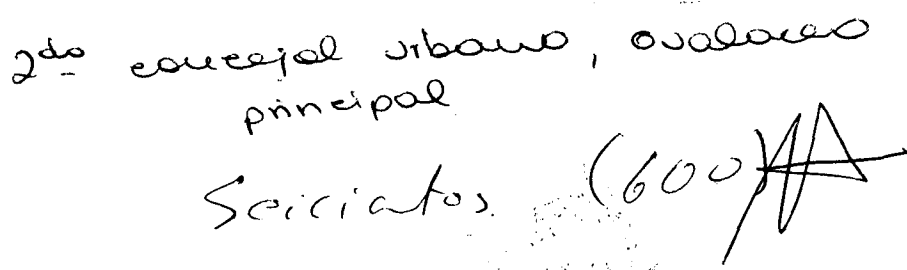 2do concejal urbano, ovalado
principal
Seiciatos (600)